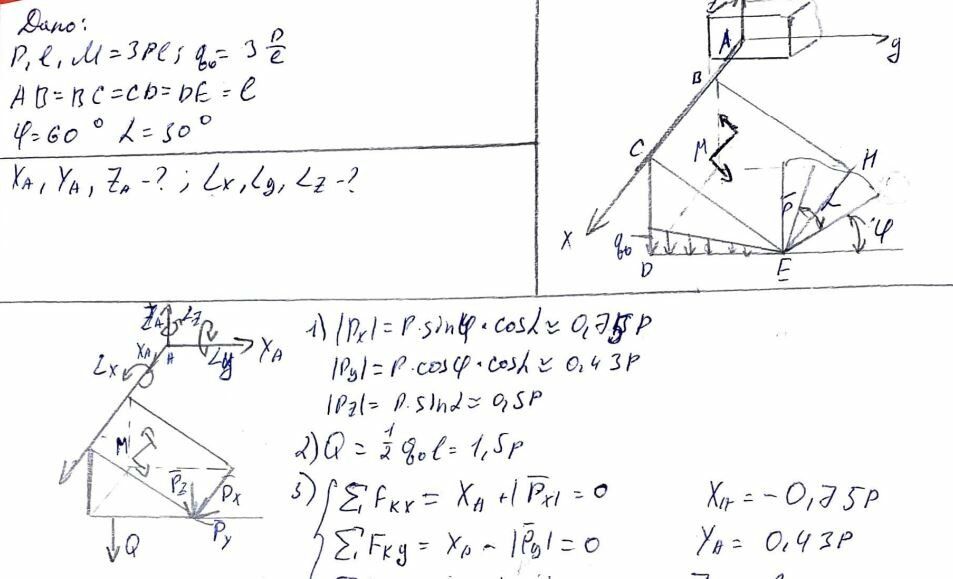 Дано:
P, l, M = 3Pl; q₀ = 3 P/l
AB = BC = CD = DE = l
φ = 60° L = 30°
X_A, Y_A, Z_A - ?; L_x, L_y, L_z - ?
A
y
B
C
M
H
P
L
φ
X
q₀
D
E
Z_A
L_z
X_A
A
X_A
L_x
L_y
M
P_z
P_x
P_y
Q
1) |P_x| = P · sin φ · cos L ≈ 0,75P
|P_y| = P · cos φ · cos L ≈ 0,43P
|P_z| = P · sin L ≈ 0,5P
2) Q = 1/2 q₀ l = 1,5P
3) { Σ F_kx = X_A + |P̄_x| = 0 X_A = -0,75P
Σ F_ky = X_A - |P̄_y| = 0 Y_A = 0,43P